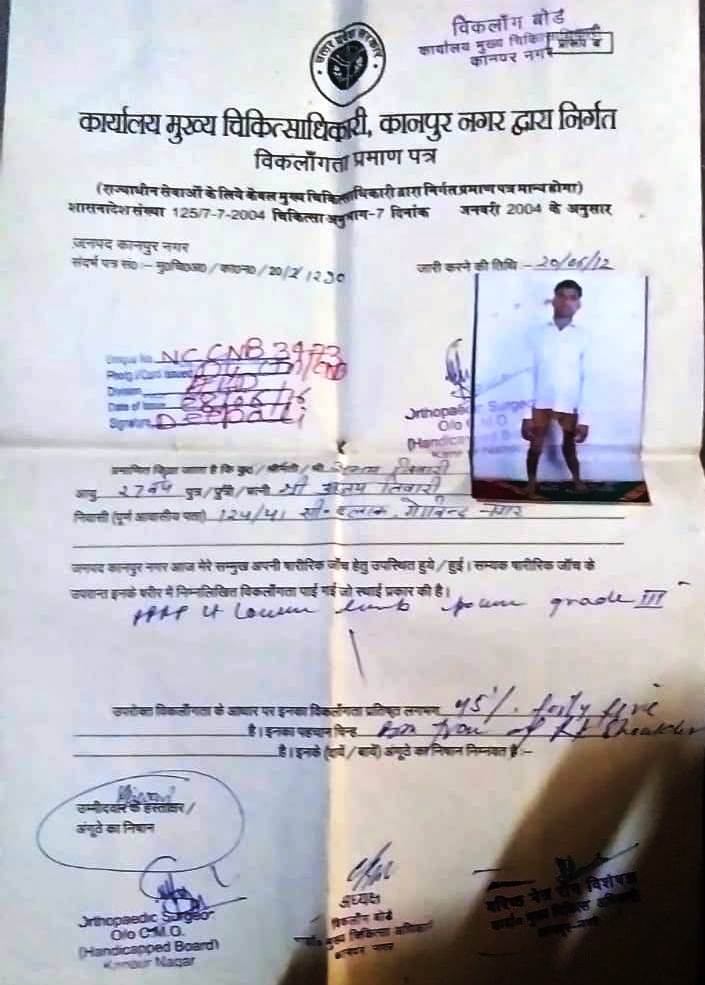 उत्तर प्रदेश सरकार
विकलाँग बोर्ड
कार्यालय मुख्य चिकित्साधिकारी
कानपुर नगर
कार्यालय मुख्य चिकित्साधिकारी, कानपुर नगर द्वारा निर्गत
विकलाँगता प्रमाण पत्र
(राज्याधीन सेवाओं के लिये केवल मुख्य चिकित्साधिकारी द्वारा निर्गत प्रमाण पत्र मान्य होगा)
शासनादेश संख्या 125/7-7-2004 चिकित्सा अनुभाग-7 दिनांक जनवरी 2004 के अनुसार
जनपद कानपुर नगर
संदर्भ पत्र सं० :- मु०चि०अ० / का०न० / 20
जारी करने की तिथि - 20/06/12
Unique No. NCCNB 3423
Photo / Card Issued
Division
Date of Issue
Signature Deepali
Orthopaedic Surgeon
O/o C.M.O.
(Handicapped Board)
Kanpur Nagar
प्रमाणित किया जाता है कि कु० / श्रीमती / श्री तिवारी
आयु 27 वर्ष पुत्र / पुत्री / पत्नी श्री तिवारी
निवासी (पूर्ण आवासीय पता) 124/41 सी० ब्लाक, गोविन्द नगर
जनपद कानपुर नगर आज मेरे सम्मुख अपनी शारीरिक जाँच हेतु उपस्थित हुये / हुई। सम्यक शारीरिक जाँच के
उपरान्त इनके शरीर में निम्नलिखित विकलाँगता पाई गई जो स्थाई प्रकार की है।
PPRP Lt Lower limb power grade III
उपरोक्त विकलाँगता के आधार पर इनका विकलाँगता प्रतिशत लगभग 45% forty five
है। इनका पहचान चिन्ह of Rt Shoulder
है। इनके (दायें / बायें) अंगूठे का निशान निम्नवत है :-
उम्मीदवार के हस्ताक्षर /
अंगूठे का निशान
Orthopaedic Surgeon
O/o C.M.O.
(Handicapped Board)
Kanpur Nagar
अध्यक्ष
विकलाँग बोर्ड
कार्या० मुख्य चिकित्सा अधिकारी
कानपुर नगर
वरिष्ठ नेत्र रोग विशेषज्ञ
कार्या० मुख्य चिकित्सा अधिकारी
कानपुर-नगर